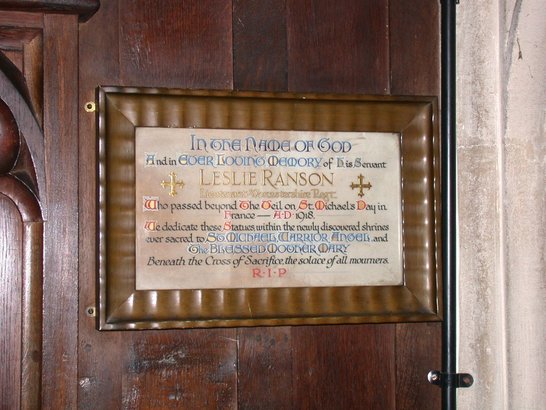 In the Name of God
And in Ever Loving Memory of His Servant
Leslie Ranson
Lieutenant Worcestershire Regt.
Who passed beyond The Veil on St. Michael's Day in
France — A.D. 1918.
We dedicate these Statues within the newly discovered shrines
ever sacred to St. Michael, Warrior Angel and
The Blessed Mother Mary
Beneath the Cross of Sacrifice, the solace of all mourners.
R·I·P